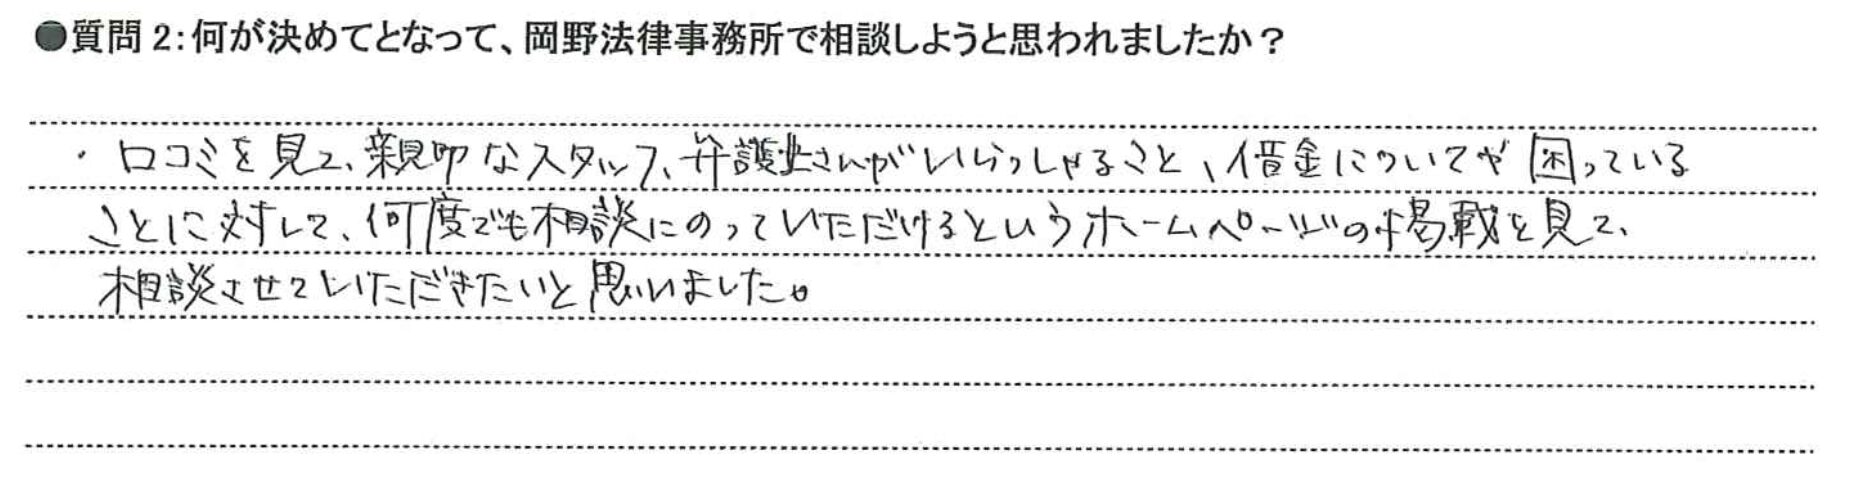 ●質問2:何が決めてとなって、岡野法律事務所で相談しようと思われましたか?
・口コミを見て、親切なスタッフ、弁護士さんがいらっしゃること、借金についてや困っている
ことに対して、何度でも相談にのっていただけるというホームページの掲載を見て、
相談させていただきたいと思いました。